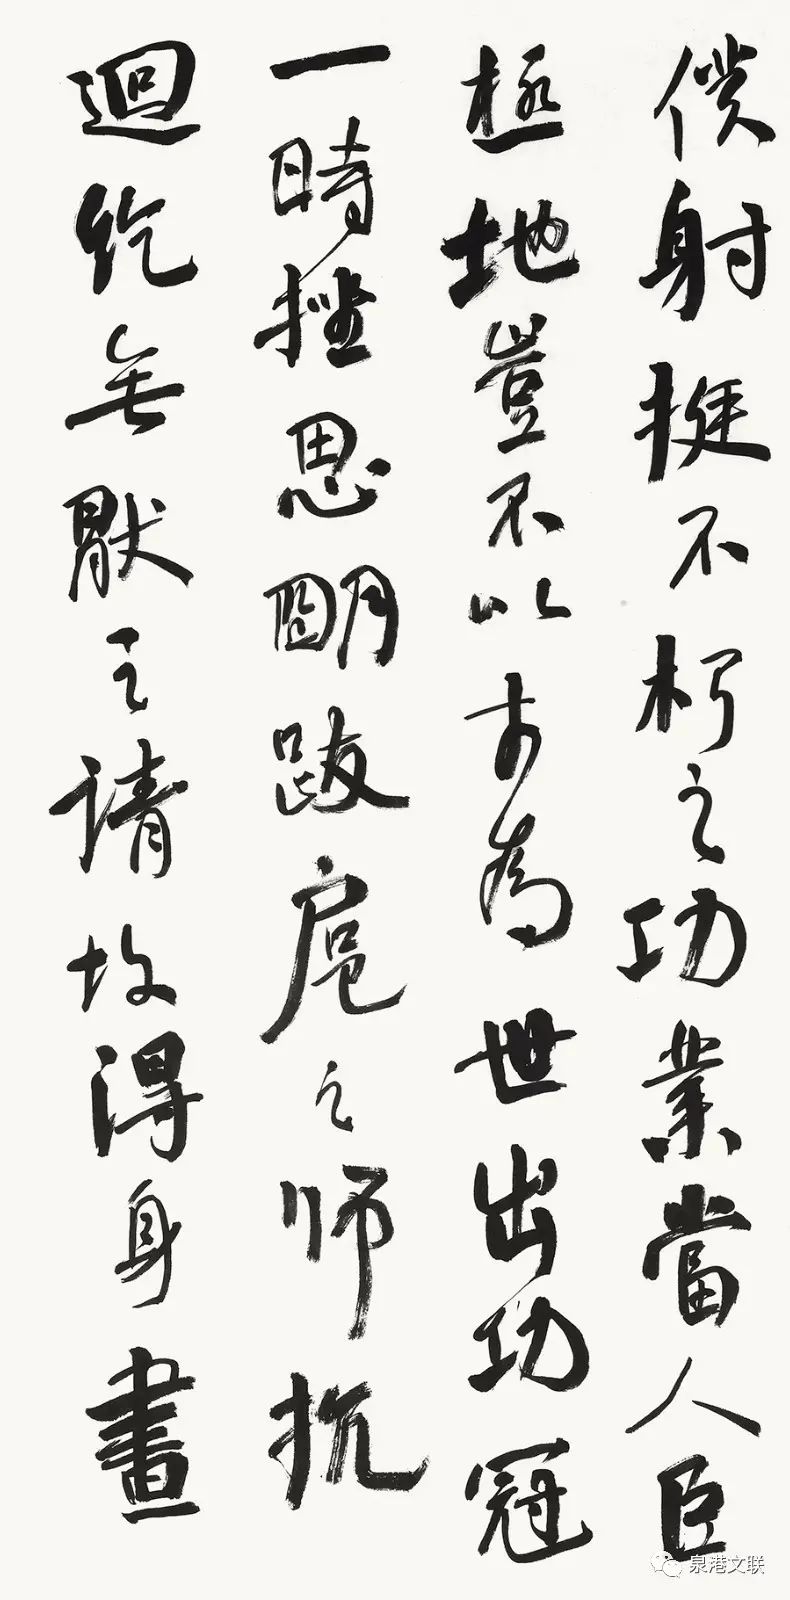 僕射挺不朽之功業當人臣
極地豈不以才為世出功冠
一時挫思明跋扈之师抗
迴紇無猒之请故得身畫
泉港文联